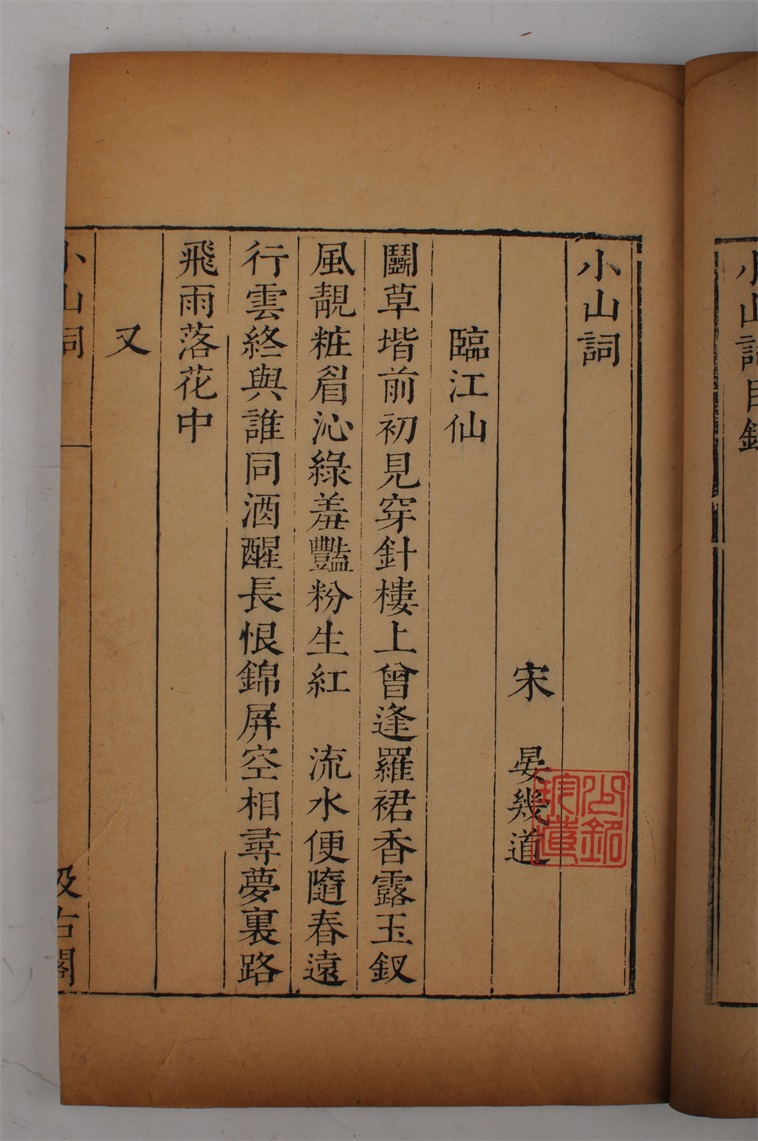 小山詞目錄
小山詞
宋　晏幾道
臨江仙
鬬草堦前初見穿針樓上曾逢羅裙香露玉釵
風靚粧眉沁綠羞豔粉生紅　流水便隨春遠
行雲終與誰同酒醒長恨錦屏空相尋夢裏路
飛雨落花中
又
小山詞
汲古閣